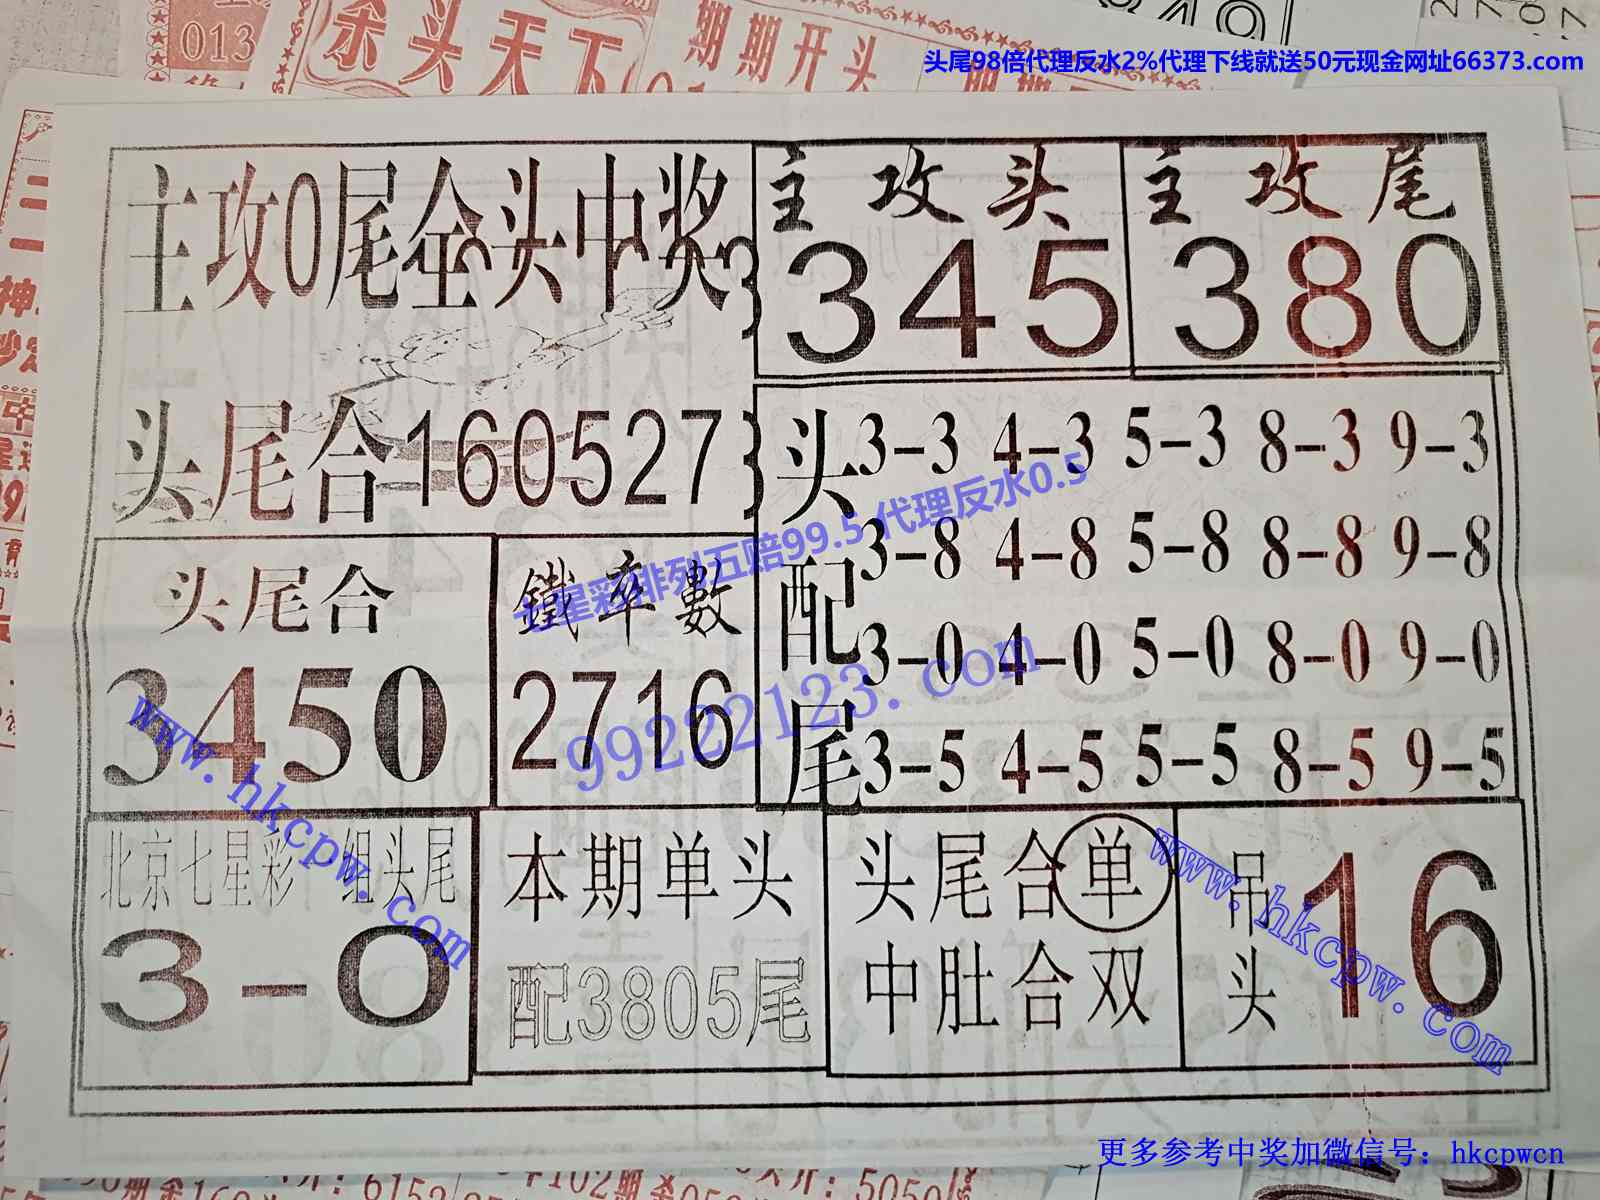 013
杀头天下
期期开头
头尾98倍代理反水2%代理下线就送50元现金网址66373.com
主攻0尾全头中奖
主攻头
345
主攻尾
380
头尾合160527
头配尾
3-3 4-3 5-3 8-3 9-3
3-8 4-8 5-8 8-8 9-8
3-0 4-0 5-0 8-0 9-0
3-5 4-5 5-5 8-5 9-5
头尾合
3450
鐵率數
2716
七星彩排列五赔99.5 代理反水0.5
99222123.com
www.hkcpw.com
北京七星彩一组头尾
3-0
本期单头
配3805尾
头尾合单
中肚合双
吊头
16
www.hkcpw.com
更多参考中奖加微信号：hkcpwcn